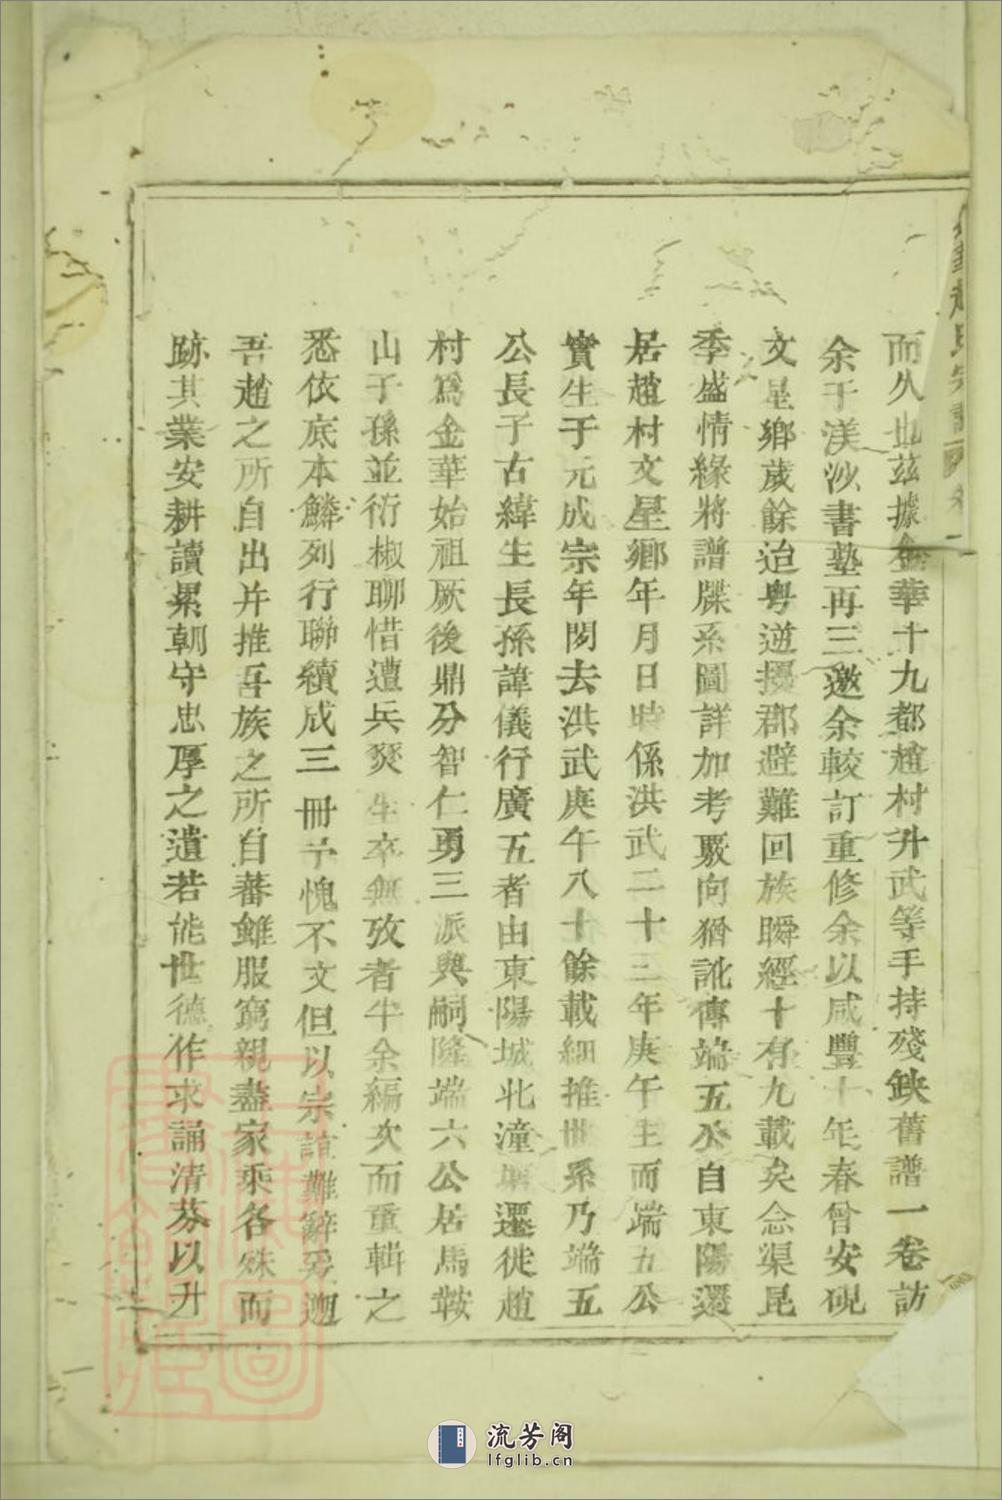 華趙氏宗譜
而久也茲據金華十九都趙村升武等手持殘缺舊譜一卷訪
余于渼沙書塾再三邀余較訂重修余以咸豐十年春曾安硯
文星鄉歲餘迨粵逆擾郡避難回族瞬經十有九載矣念渠昆
季盛情緣將譜牒系圖詳加考覈向猶訛傳端五公自東陽還
居趙村文星鄉年月日時係洪武二十三年庚午生而端五公
實生于元成宗年間去洪武庚午八十餘載細推世系乃端五
公長子古緯生長孫諱儀行廣五者由東陽城北潼塘遷徙趙
村爲金華始祖厥後鼎分智仁勇三派與嗣隆端六公居馬鞍
山子孫並衍椒聊惜遭兵燹生卒無攷者半余編次而重輯之
悉依底本鱗列行聯續成三冊予愧不文但以宗誼難辭爰遡
吾趙之所自出并推吾族之所自蕃雖服窮親盡家乘各殊而
跡其業安耕讀累朝守忠厚之遺若能世德作求誦清芬以升
流芳阁
lfglib.cn